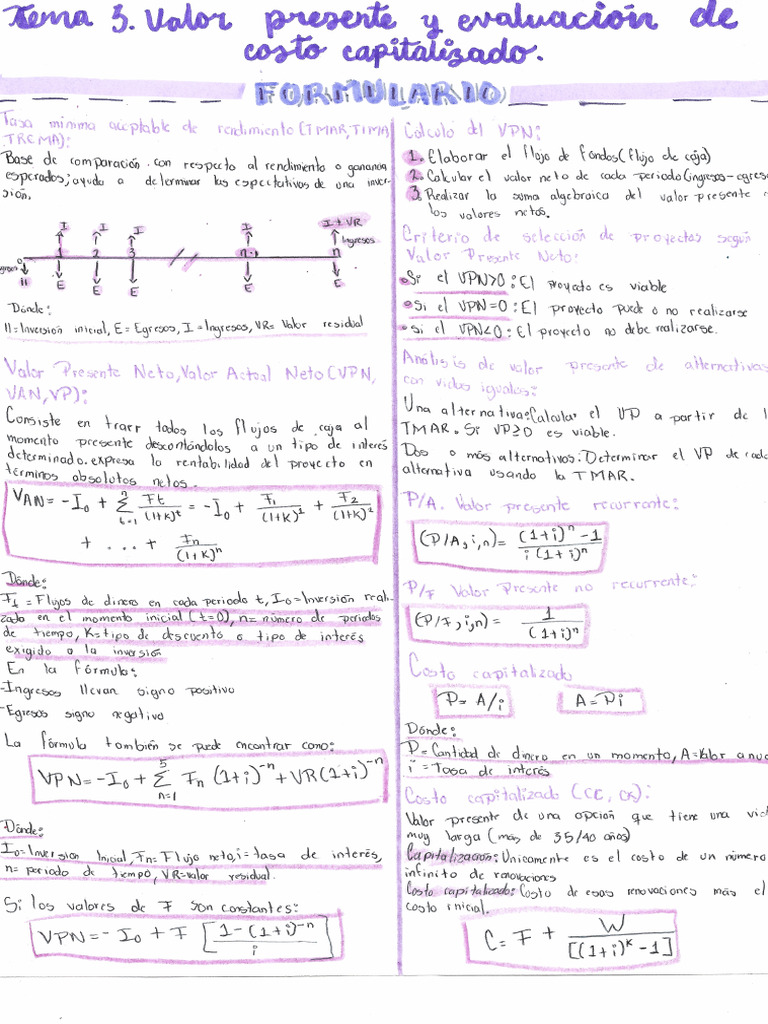 Tema 3. Valor presente y evaluación de
costo capitalizado.
FORMULARIO
Tasa minima aceptable de rendimiento (TMAR, TIMA,
TREMA):
Base de comparación con respecto al rendimiento o ganancia
esperados; ayuda a determinar las espectativas de una inver-
sión.
I I I I I + VR
Ingresos
0 1 2 3 n-1 n
II E E E E E
Dónde:
II=Inversión inicial, E= Egresos, I=Ingresos, VR= Valor residual
Valor Presente Neto, Valor Actual Neto (VPN,
VAN, VP):
Consiste en traer todos los flujos de caja al
momento presente descontándolos a un tipo de interés
determinado. expresa la rentabilidad del proyecto en
terminos absolutos netos.
VAN = -I₀ + Σ t=1 n Ft/(1+K)^t = -I₀ + F₁/(1+K)^1 + F₂/(1+K)^2
+ ... + Fn/(1+K)^n
Dónde:
Ft = Flujos de dinero en cada periodo t, I₀=Inversión reali-
zada en el momento inicial (t=0), n= número de periodos
de tiempo, K=tipo de descuento o tipo de interés
exigido a la inversión
En la fórmula:
-Ingresos llevan signo positivo
-Egresos signo negativo
La fórmula también se puede encontrar como:
VPN=-I₀ + Σ n=1 5 Fn (1+i)^-n + VR(1+i)^-n
Dónde:
I₀=Inversion Inicial, Fn= Flujo neto, i= tasa de interés,
n= periodo de tiempo, VR=valor residual.
Si los valores de F son constantes:
VPN=- I₀ + F [1-(1+i)^-n / i]
Cálculo del VPN:
1. Elaborar el flujo de fondos (flujo de caja)
2. Calcular el valor neto de cada periodo (ingresos-egresos
3. Realizar la suma algebraica del valor presente
los valores netos.
Criterio de selección de proyectos según
Valor Presente Neto:
•Si el VPN>0: El proyecto es viable
•Si el VPN=0: El proyecto puede o no realizarse
•si el VPN<0: El proyecto no debe realizarse.
Análisis de valor presente de alternativas
con vidas iguales:
Una alternativa: Calcular el VP a partir de l
TMAR. Si VP≥0 es viable.
Dos o más alternativos: Determinar el VP de cada
alternativa usando la TMAR.
P/A. Valor presente recurrente:
(P/A, i, n) = (1+i)^n - 1 / i(1+i)^n
P/F Valor Presente no recurrente:
(P/F, i, n) = 1 / (1+i)^n
Costo capitalizado
P= A/i A = Pi
Dónde:
P=Cantidad de dinero en un momento, A=Valor anua
i = Tasa de interés
Costo capitalizado (CC, CK):
Valor presente de una opción que tiene una vid
muy larga (más de 35/40 años)
Capitalización: Unicamente es el costo de un número
infinito de renovaciones
Costo capitalizado: Costo de esas renovaciones más el
costo inicial.
C= F + W / [(1+i)^k -1]